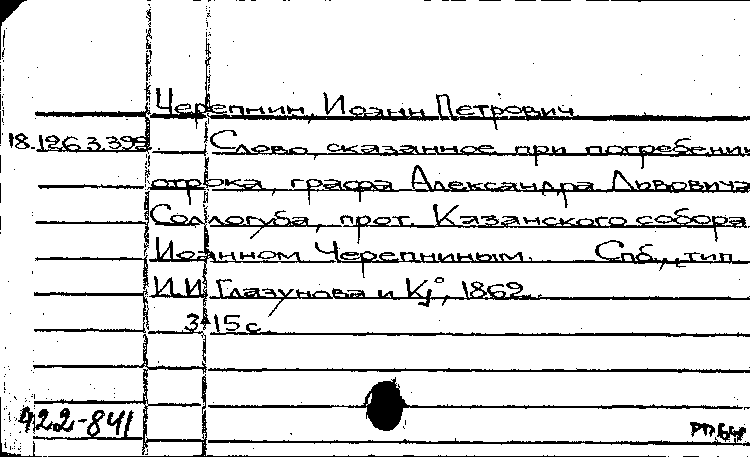 Черепнин, Иоанн Петрович
18.126.3.399 Слово, сказанное при погребении
отрока, графа Александра Львовича
Соллогуба, прот. Казанского собора
Иоанном Черепниным. Спб., тип.
И.И. Глазунова и К°, 1862.
3-15 с.
422-841